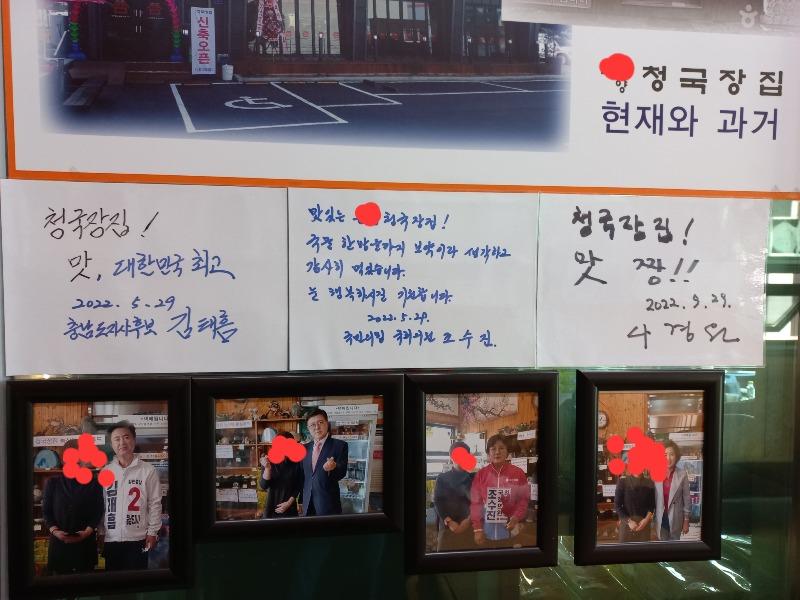 신축오픈
청국장집
현재와 과거
청국장집!
맛, 대한민국 최고
2022. 5. 29
충남도지사후보 김태흠
맛있는 청국장집!
국물 한방울까지 보약이라 생각하고
감사히 먹었습니다.
늘 행복하시길 기원합니다.
2022. 5. 29.
국민의힘 국회의원 조수진.
청국장집!
맛 짱!!
2022. 9. 29.
나경원
김태흠
2
조수진